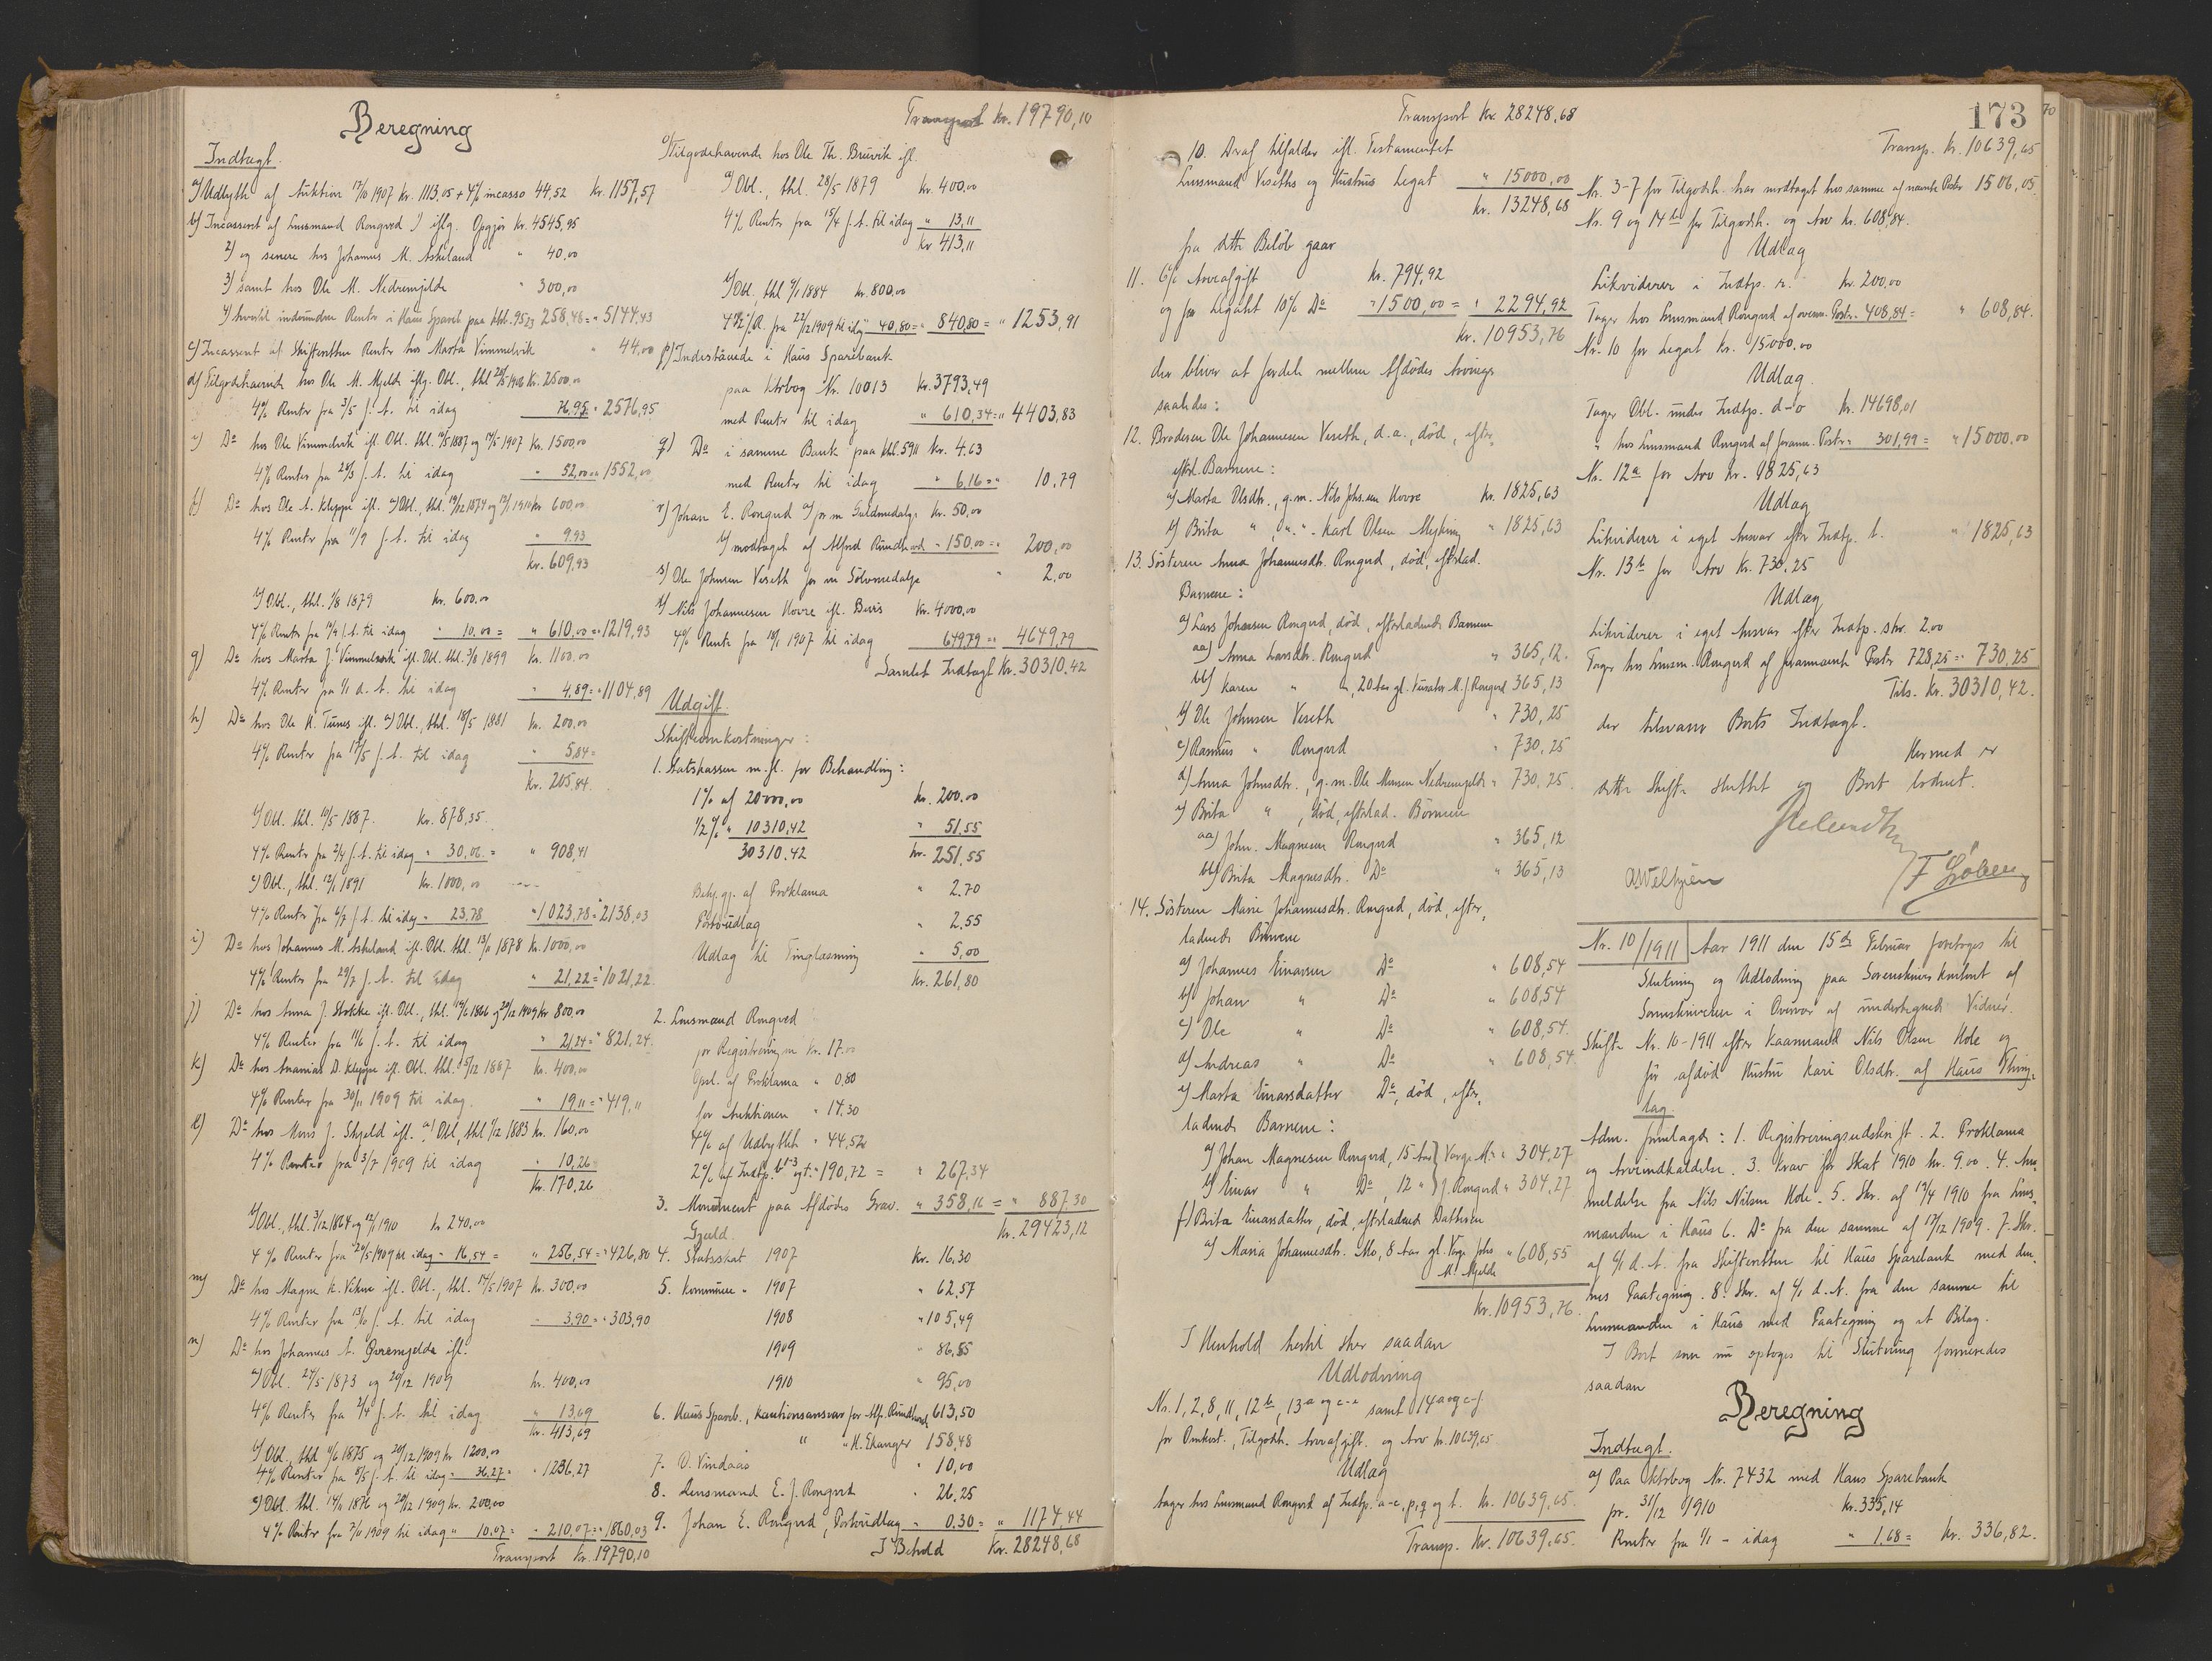 Beregning
Indtægt.
a) Udbytte af Auktion 17/10 1907 kr. 1113,05 + 4% incasso 44,52 kr. 1157,57
b) Incasseret af Lensmand Rongved 1) iflg. Opgjør kr. 4545,95
2) og senere hos Johannes M. Askeland " 40,00
3) samt hos Ole M. Nedremjelde " 300,00
4) hvortil indvundne Renter i Haus Spareb. paa 258,48 = " 5144,43
c) Incasseret af Skifteretten Renter hos Marta Vimmelvik " 44,00
d) Tilgodehavende hos Ole M. Mjelde iflg. Obl., thl. 1906 kr. 2500,00
4% Renter fra 3/5 f. A. til idag 76,95 " 2576,95
e) Do hos Ole Vimmelvik ifl. Obl. thl. 1887 og 1907 kr. 1500,00
4% Renter fra f. A. til idag " 52,00 = " 1552,00
f) Do hos Ole A. Kleppe ifl. a) Obl., thl. 19/12 1874 og 1910 kr. 600,00
4% Renter fra 11/9 f. A. til idag " 9.93
kr. 609,93
b) Obl., thl. 1/8 1879 kr. 600,00
4% Renter fra f. A. til idag " 10,00 = " 610,00 = " 1219,93
g) Do hos Marta J. Vimmelvik ifl. Obl. thl. 3/8 1899 kr. 1100,00
4% Renter fra 1/1 d. A. til idag " 4,89 = " 1104,89
h) Do hos Ole K. Tunes ifl. a) Obl., thl. 18/5 1881 kr. 200,00
4% Renter fra 17/5 f. A. til idag " 5,84 =
kr. 205,84.
b) Obl. thl. 10/5 1887. kr. 878,35
4% Renter fra 2/4 f. A. til idag " 30,06 = " 908,41
c) Obl., thl. 12/1 1891 kr. 1000,00
4% Renter fra 6/7 f. A. til idag " 23,78 " 1023,78 = " 2138,03
i) Do hos Johannes M. Askeland ifl. Obl. thl. 13/11 1878 kr. 1000,00
4% Renter fra 29/7 f. A. til idag " 21,22 = " 1021,22.
j) Do hos Anna J. Stokke ifl. Obl., thl. 1866 og 20/12 1909 kr. 800,00
4% Renter fra 11/6 f. A. til idag " 21,24 = " 821,24.
k) Do hos Ananias D. Kleppe ifl. Obl. thl. 5/12 1887 kr. 400,00
4% Renter fra 30/11 1909 til idag. " 19,11 = " 419,11
l) Do hos Mons J. Skjeld ifl. a) Obl., thl. 1/12 1883 kr. 160,00
4% Renter fra 3/7 1909 til idag " 10,26
kr. 170,26
b) Obl., thl. 3/12 1864 og 12/1 1910 kr. 240,00
4% Renter fra 20/5 1909 til idag " 16,54 = " 256,54 = " 426,80
m) Do hos Magne K. Vikne ifl. Obl., thl. 14/5 1907 kr. 300,00
4% Renter fra 13/10 f. A. til idag " 3,90 = " 303,90
n) Do hos Johannes A. Øvremjelde ifl.
a) Obl. 24/5 1873 og 20/12 1909 kr. 400,00
4% Renter fra 2/4 f. A. til idag " 13,69
kr. 413,69
b) Obl., thl. 11/6 1875 og 20/12 1909 kr. 1200,00
4% Renter fra 8/5 f. A. til idag " 36,27 = " 1236,27
c) Obl. thl. 14/11 1876 og 20/12 1909 kr. 200,00
4% Renter fra 2/11 1909 til idag " 10,07 = " 210,07 = " 1860,03
Transport kr. 19790,10
Transport kr. 19790,10
o) Tilgodehavende hos Ole Th. Bruvik ifl.
a) Obl., thl. 28/5 1879 kr. 400,00
4% Renter fra 15/4 f. A. til idag " 13,11
kr. 413,11
b) Obl., thl 9/1 1884 kr. 800,00
4½% R. fra 22/12 1909 til idag " 40,80 = " 840,80 = " 1253,91
p) Indestående i Haus Sparebank
paa Ktrbog Nr. 10013 kr. 3793,49
med Renter til idag " 610,34 = " 4403,83
q) Do i samme Bank paa Khl. 5911 kr. 4.63
med Renter til idag " 6,16 = " 10,79
r) Johan E. Rongved a) for en Guldmedalje kr. 50,00
b) modtaget af Alfred Rundhovd " 150,00 = " 200,00
s) Ole Johnsen Veseth for en Sølvmedalje " 2,00
t) Nils Johannesen Hovre ifl. Bevis kr. 4000,00
4% Rente fra 1907 til idag 649,79 = " 4649,79
Samlet Indtægt kr. 30310,42
Udgift.
Skifteomkostninger:
1. Statskassen m. fl. for Behandling:
1% af 20000,00 kr. 200,00
1/2% " 10310,42 " 51,55
30310,42 kr. 251,55
Bekj.gj. af Proklama " 2.70
Portoudlag " 2.55
Udlag til Tinglæsning " 5,00
kr. 261,80
2. Lensmand Rongved
for Registreringen kr. 17,00
Opsl. af Proklama " 0,80
for Auktionen " 14,30
4% af Udbyttet " 44,52
2% af Indtp. b1-3 og t. " 190,72 = " 267,34
3. Monument paa Afdødes Grav. " 358,16 = " 887,30
Gjæld. kr. 29423,12
4. Statsskat 1907 kr. 16,30
5. Kommune " 1907 " 62,57
1908 " 105,49
1909 " 86,85
1910 " 95,00
6. Haus Spareb., Kautionsansvar for Alf. Rundhovd 613,50
" " H. Ekanger 158,48
7. O. Vindaas " 10,00
8. Lensmand E. J. Rongved " 26,25
9. Johan E. Rongved, Portoudlag " 0.30 = " 1174,44
I Behold kr. 28248,68
173
70
Transport kr. 28248,68
10. Deraf tilfalder ifl. Testamentet
Lensmand Veseths og Hustrus Legat " 15000,00
kr. 13248,68
fra dette Beløb gaar
11. 6% Arveafgift kr. 794,92
og for Legatet 10% Do " 1500,00 = " 2294,92
kr. 10953,76
der bliver at fordele mellem Afdødes Arvinger
saaledes:
12. Broderen Ole Johannesen Veseth, d.a., død, efter-
efterl. Børnene:
a) Marta Olsdtr., g.m. Nils Johs.sen Hovre kr. 1825,63
b) Brita " , " " Karl Olsen " 1825,63
13. Søsteren Anna Johannesdtr. Rongved, død, efterlad.
Børnene:
a) Lars Johnsen Rongved, død, efterladende Børnene
aa) Anna Larsdtr. Rongved " 365,12.
bb) Karen " " , 20 Aar gl. Kurator M. J. Rongved 365,13
b) Ole Johnsen Veseth " 730,25
c) Rasmus " Rongved " 730,25
d) Anna Johnsdtr., g.m. Ole Monsen Nedremjelde " 730,25.
e) Brita " , død, efterlad. Børnene
aa) John. Magnesen Rongved " 365,12
bb) Brita Magnesdtr. Do " 365,13
14. Søsteren Marie Johannesdtr. Rongved, død, efter-
ladende Børnene
a) Johannes Einarsen Do " 608,54
b) Johan " Do " 608,54
c) Ole " Do " 608,54.
d) Andreas " Do " 608,54.
e) Marta Einarsdatter Do, død, efter-
ladende Børnene:
a) Johan Magnesen Rongved, 15 Aar } Værge M. " 304,27
b) Einar " Do, 12 " } J. Rongved " 304,27
f) Brita Einarsdatter, død, efterladende Datteren
a) Maria Johannesdtr. Mo, 8 Aar gl. Værge Johs " 608,55
M. Mjelde
kr. 10953,76.
I Henhold hertil sker saadan
Udlodning
Nr. 1, 2, 8, 11, 12b, 13a og c-e samt 14a og c-f
for Omkost., Tilgodeh. Arveafgift. og Arv kr. 10639,65
Udlæg
tager hos Lensmand Rongved af Indtp. a-c, p, q og t. kr. 10639,65.
Transp. kr. 10639,65.
Transp. kr. 10639,65
Nr. 3-7 for Tilgodeh. har modtaget hos samme af nævnte Poster 1506,05.
Nr. 9 og 14b for Tilgodeh. og Arv kr. 608,84.
Udlæg
Likviderer i Indtp. r. kr. 200,00
Tager hos Lensmand Rongved af ovenn. Poster " 408,84 = " 608,84.
Nr. 10 for Legat kr. 15000,00
Udlæg.
Tager Obl. under Indtp. d-o kr. 14698,01
" hos Lensmand Rongved af forann. Poster " 301,99 = " 15000,00
Nr. 12a for Arv kr. 1825,63
Udlæg
Likviderer i eget Ansvar efter Indtp. t. " 1825,63
Nr. 13b for Arv kr. 730,25
Udlæg
Likviderer i eget Ansvar efter Indtp. s kr. 2.00
Tager hos Lensm. Rongved af forannævnte Poster 728,25 = " 730,25
Tils. kr. 30310,42.
der tilsvarer Boets Indtægt.
Hermed er
dette Skifte sluttet og Boet lodnet.
Nr. 10/1911 Aar 1911 den 15de Februar foretoges til
Slutning og Udlodning paa Sorenskriverkontoret af
Sorenskriveren i Overvær af undertegnede Vidner.
Skifte Nr. 10-1911 efter Kaarmand Nils Olsen Hole og
før afdød Hustru Kari Olsdtr. af Haus Thing-
lag.
Adm. fremlagde: 1. Registreringsudskrift. 2. Proklama
og Arveindkaldelse. 3. Krav for Skat 1910 kr. 9.00. 4. An-
meldelse fra Nils Nilsen Hole. 5. Skr. af 13/4 1910 fra Lens-
manden i Haus 6. Do fra den samme af 17/12 1909. 7. Skr.
af 9/1 d. A. fra Skifteretten til Haus Sparebank med den-
nes Paategning. 8. Skr. af d. A. fra den samme til
Lensmanden i Haus med Paategning og et Bilag.
I Boet som nu optoges til Slutning formeredes
saadan
Beregning
Indtægt.
a) Paa Ktrbog Nr. 7432 med Haus Sparebank
pr. 31/12 1910 kr. 335,14
Renter fra 1/1 - idag " 1,68 = kr. 336,82.